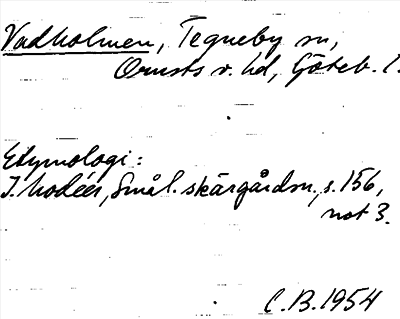 Vadholmen, Tegneby sn,
Orusts v. hd, Göteb. l.
Etymologi:
I. Modéer, Smål. skärgårdsn., s. 156,
not 3.
C.B. 1954